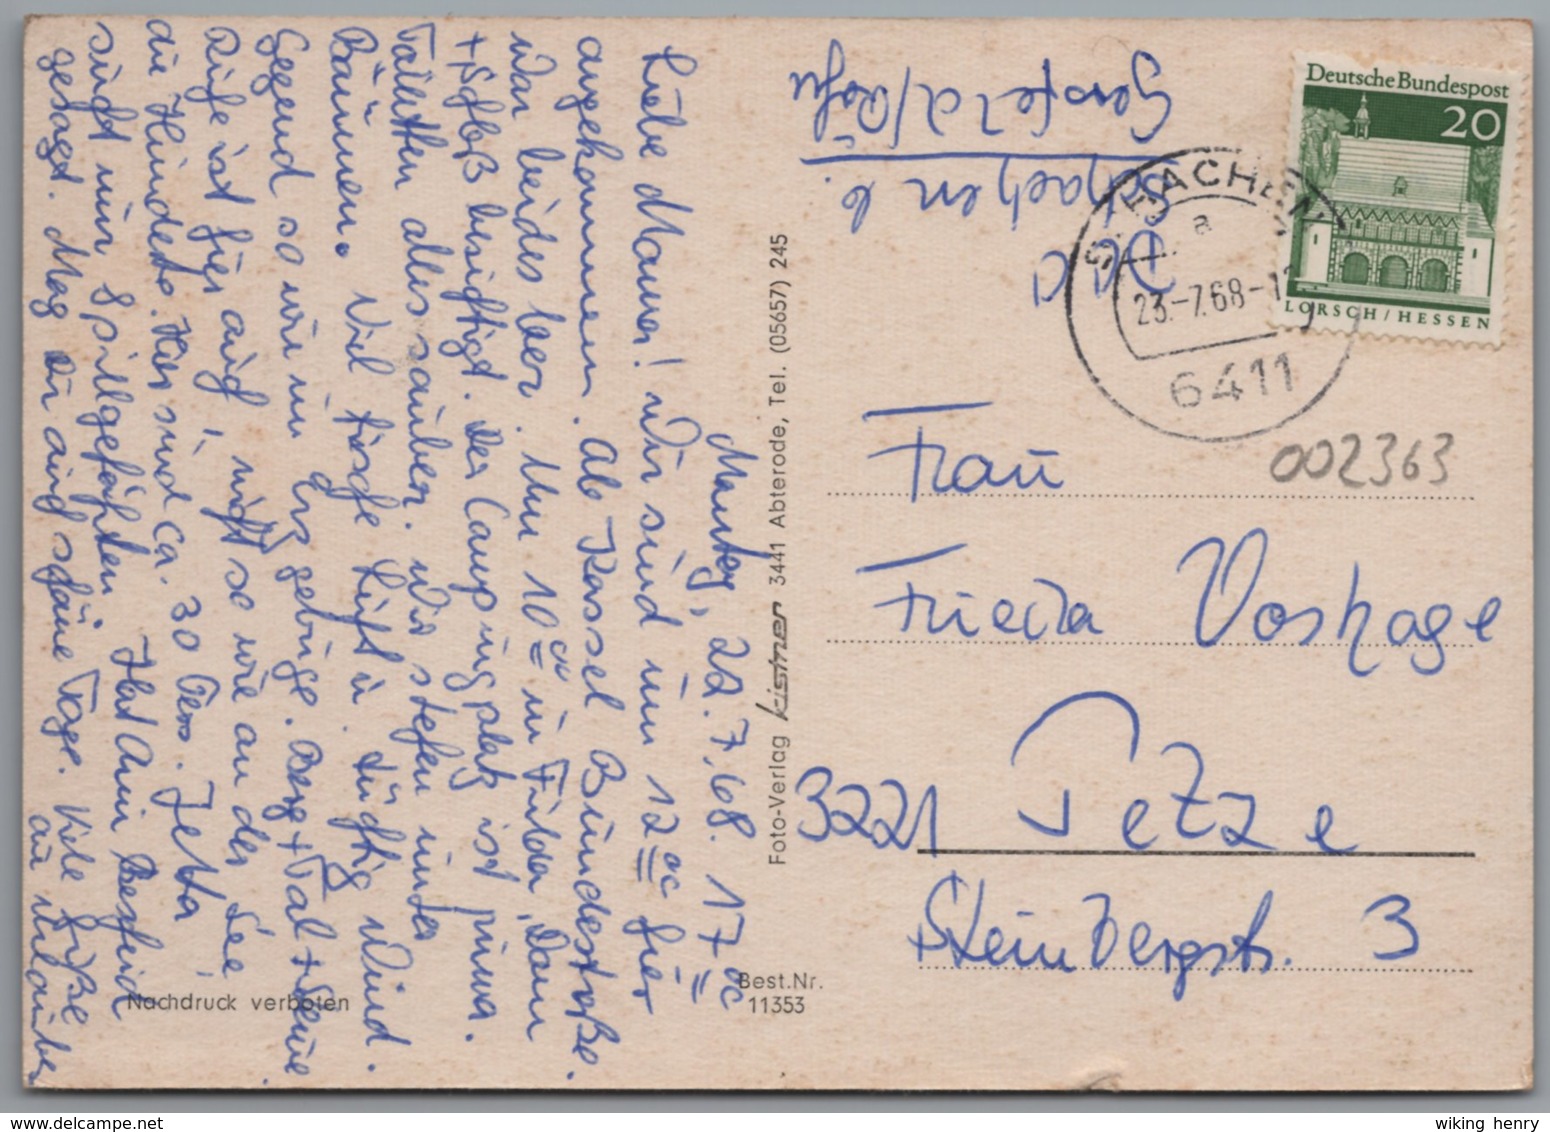 Montag, 22.7.68. 17 oo
Liebe Mama! Wir sind um 12 oc hier
angekommen. Ab Kassel Bundesstraße
war leider leer. Um 10 oc in Fulda, Dom
+ Schloß besichtigt. Der Campingplatz ist prima.
Toiletten alles sauber. Wir stehen unter
Bäumen. Viel frische Luft u. tüchtig Wind.
Gegend so wie im Erzgebirge. Berg + Tal +
Ruhe ist hier auch, nicht so wie an der See
die Hunderte. Hier sind ca. 30 Pers. Jetta
sucht nur Spielgefährten. Hat Armin Bescheid
gesagt. Mag Du auch schöne Tage. Viele Grüße
Gersfeld/Röhn
Schachen b.
Deutsche Bundespost
20
LORSCH/HESSEN
SCHACHEN
a
23.-7.68-1
6411
002363
Frau
Frieda Voshage
3221 Petze
Steinbergstr. 3
Foto-Verlag kistner 3441 Abterode, Tel. (05657) 245
Best.Nr.
11353
Nachdruck verboten
wiking henry